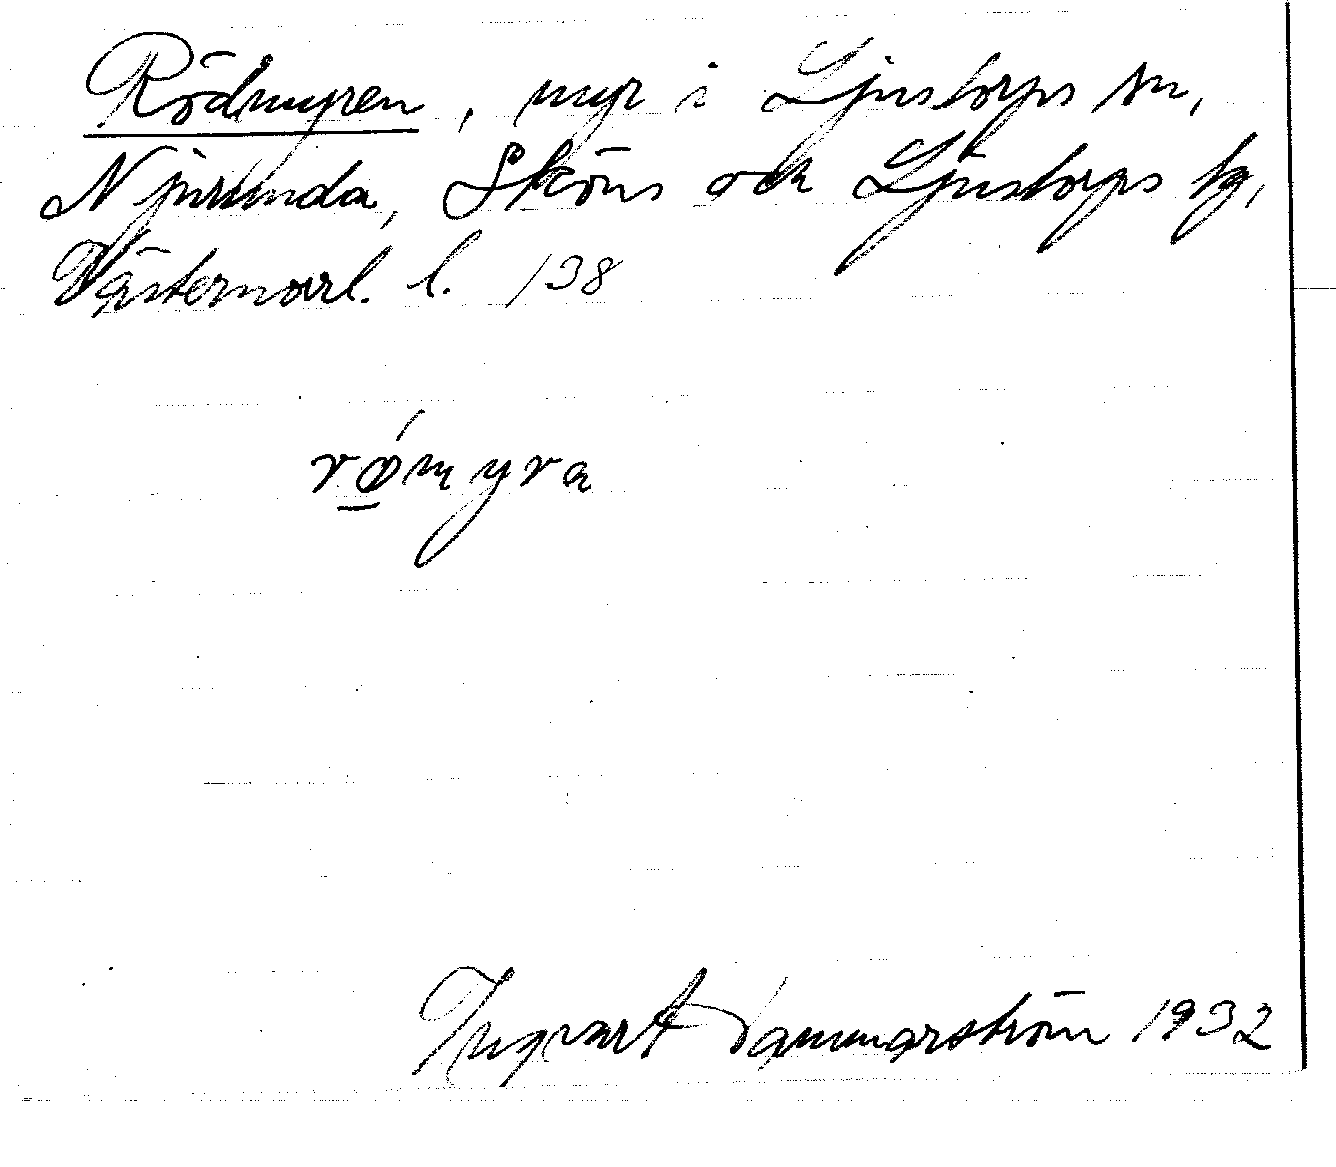 Rödmyren, myr i Ljustorps sn,
Njurunda, Sköns och Ljustorps tg,
Västernorrl. l. 138
rǿ̲myra
Ingvart Hammarström 1932